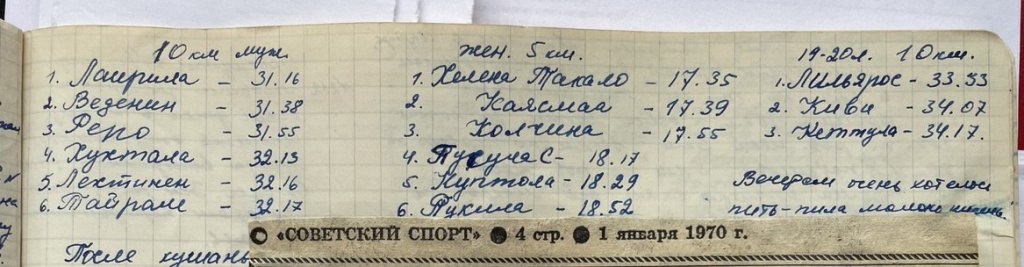 10 км муж.
1. Лаурила - 31.16
2. Веденин - 31.38
3. Репо - 31.55
4. Хухтала - 32.13
5. Лехтинен - 32.16
6. Тайпале - 32.17
После кушань
жен. 5 км.
1. Хелена Такало - 17.35
2. Каясмаа - 17.39
3. Колчина - 17.55
4. Пусула С - 18.17
5. Куптола - 18.29
6. Руккила - 18.52
19-20 л. 10 км.
1. Лильярос - 33.53
2. Киви - 34.07
3. Кеттула - 34.17.
Вечером очень хотелось
пить - пила молоко
«СОВЕТСКИЙ СПОРТ» ● 4 стр. ● 1 января 1970 г.